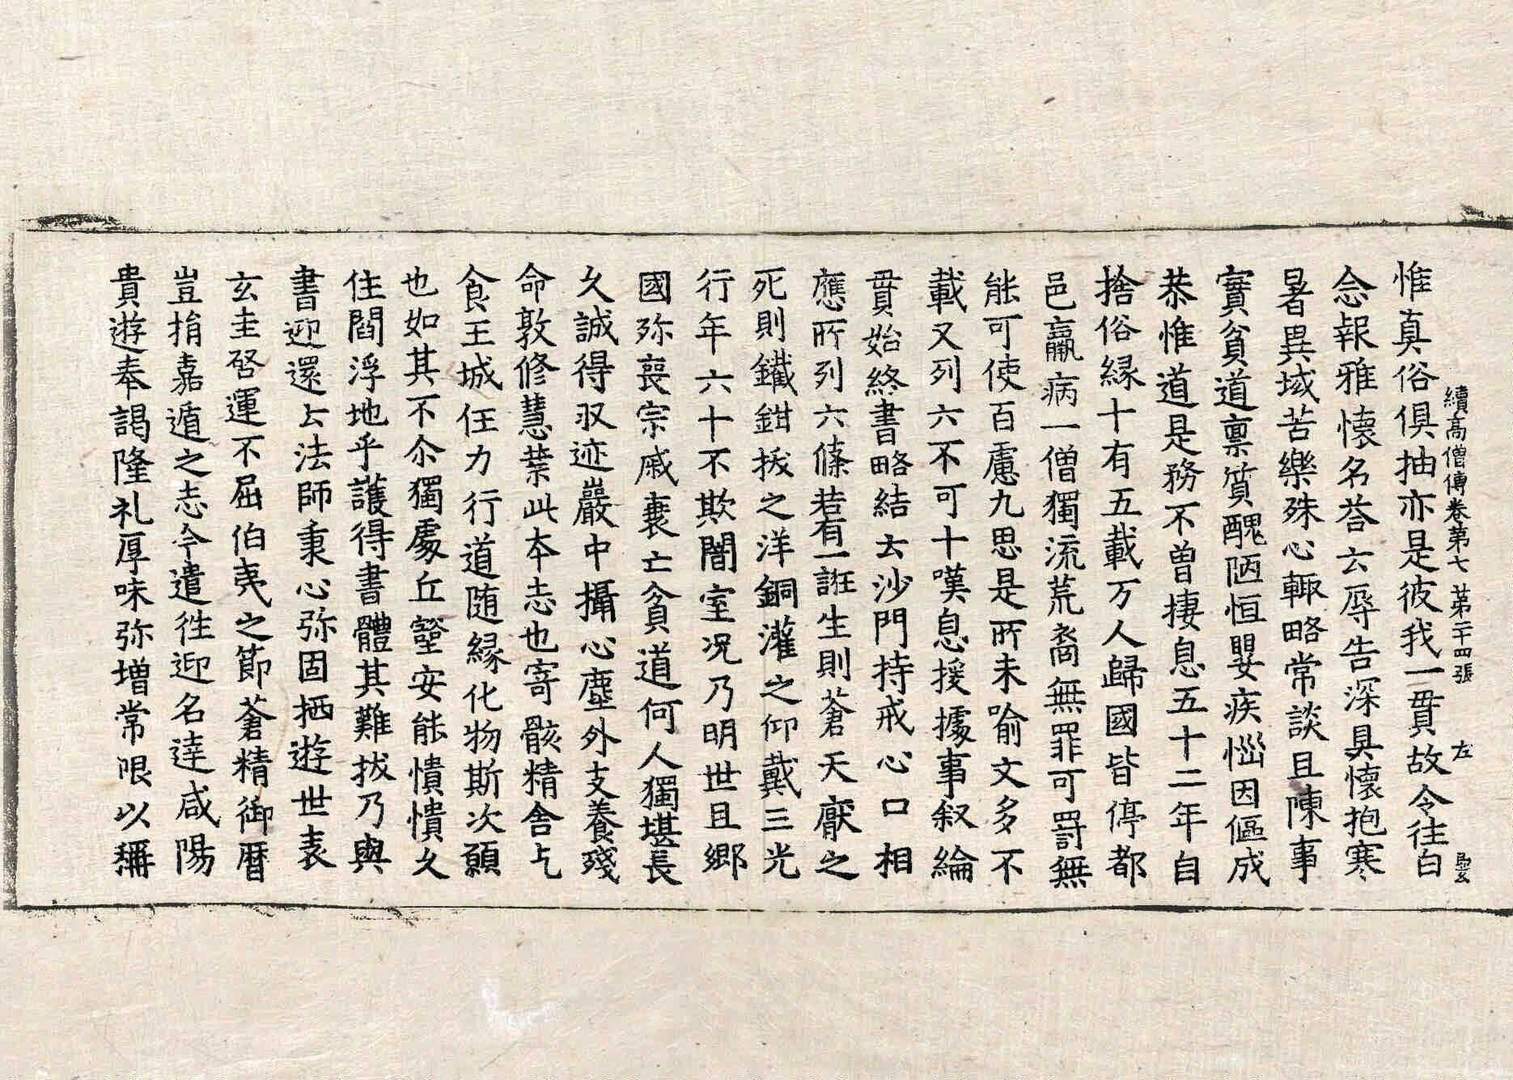 續高僧傳卷第七 苐二十四張 左
惟真俗俱抽亦是彼我一貫故令往白
念報雅懷名荅云辱告深具懷抱寒
暑異域苦樂殊心輙略常談且陳事
實貧道禀質醜陋恒嬰疾惱因傴成
恭惟道是務不曽棲息五十二年自
捨俗縁十有五載万人歸國皆停都
邑羸病一僧獨流荒裔無罪可罰無
能可使百慮九思是所未喻文多不
載又列六不可十嘆息援據事叙綸
貫始終書略結云沙門持戒心口相
應所列六條若有一誑生則蒼天厭之
死則鐵鉗拔之洋銅灌之仰戴三光
行年六十不欺闇室况乃明世且鄉
國弥䘮宗戚衰亡貧道何人獨堪長
久誠得収迹巖中攝心塵外支養殘
命敦修慧業此本志也寄骸精舍乞
食王城任力行道随縁化物斯次願
也如其不尒獨處丘壑安能憒憒久
住閻浮地乎護得書體其難拔乃與
書迎還云法師秉心弥固栖遊世表
玄圭啓運不屈伯夷之節蒼精御曆
豈捐嘉遁之志今遣往迎名逹咸陽
貴遊奉謁隆礼厚味弥増常限以稱